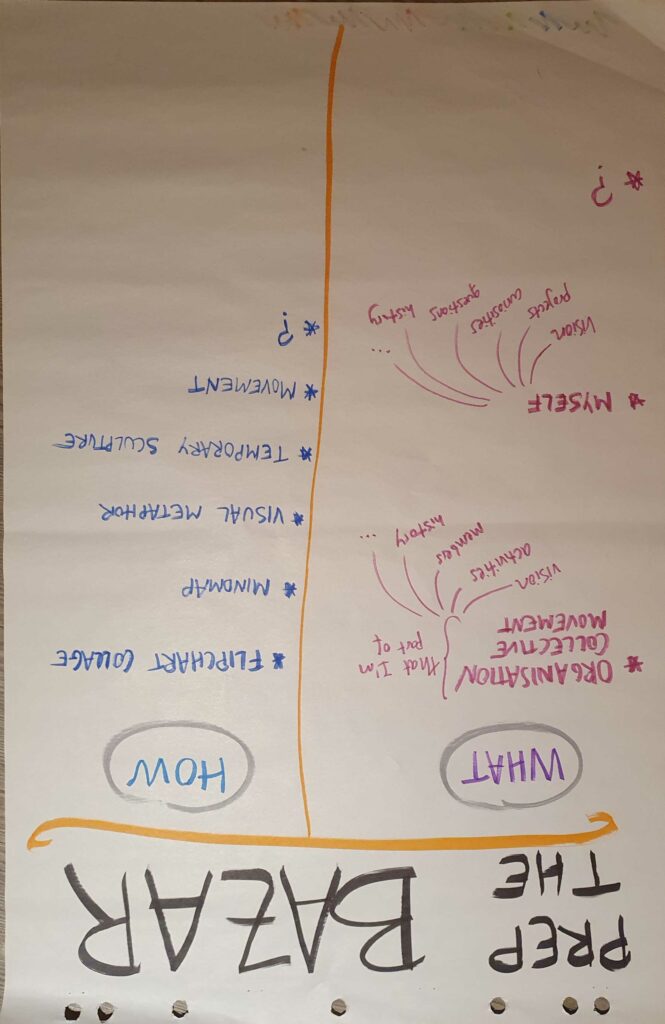 PREP
THE
BAZAR
WHAT
* ORGANISATION
COLLECTIVE
MOVEMENT
that I'm
part of
vision
activities
members
history
...
* MYSELF
vision
projects
curiosities
questions
history
...
* ?
HOW
* FLIPCHART COLLAGE
* MINDMAP
* VISUAL METAPHOR
* TEMPORARY SCULPTURE
* MOVEMENT
* ?